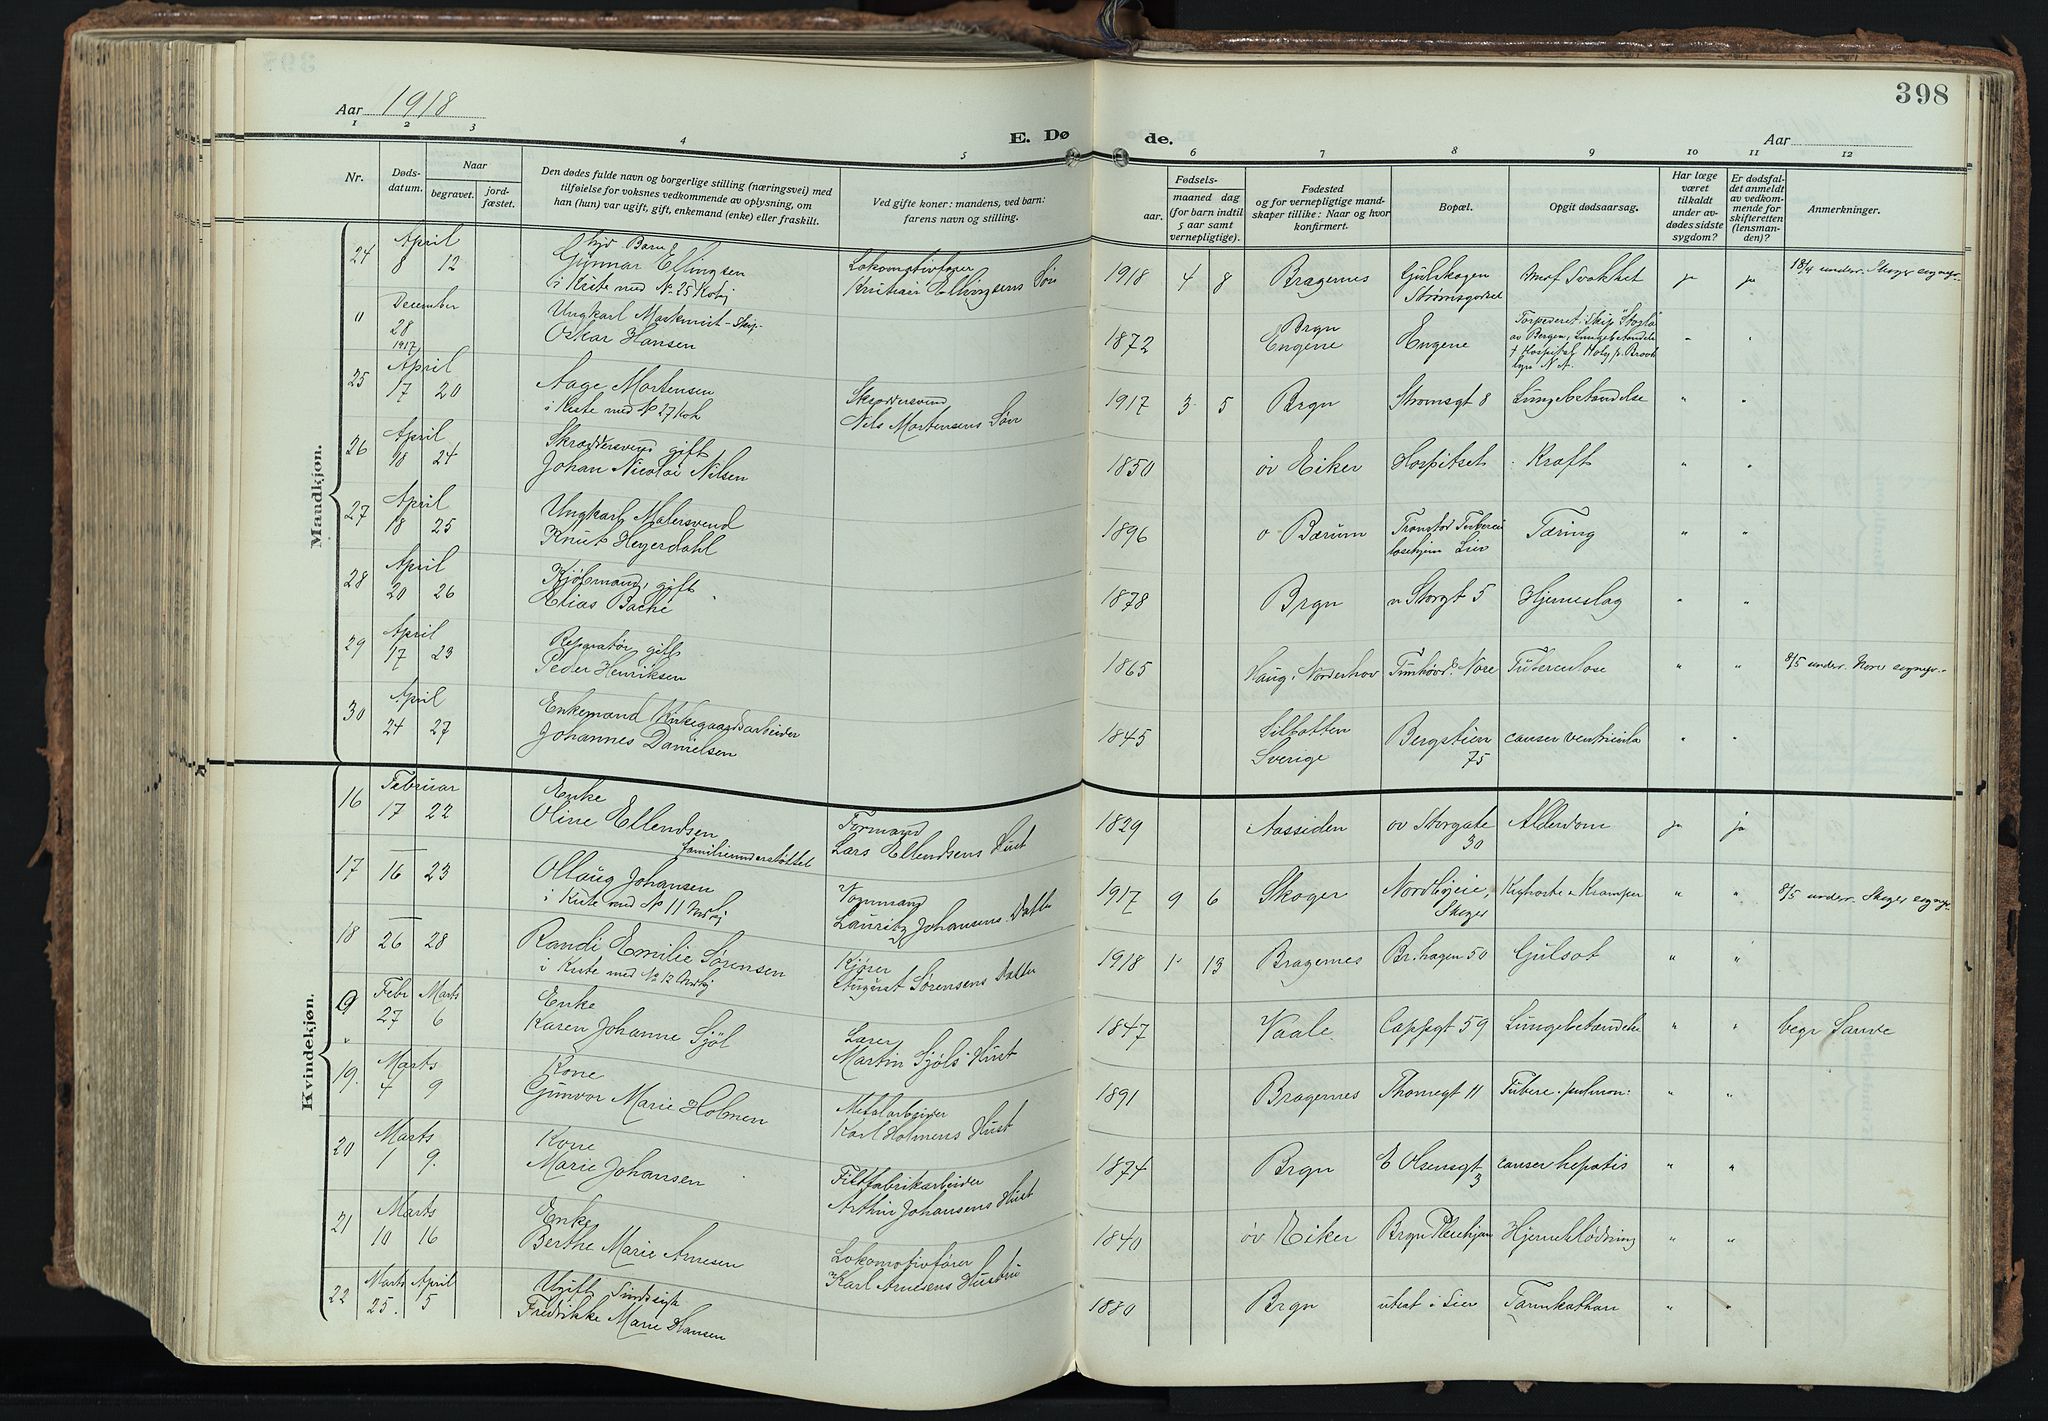 398
Aar 1918
E. Dø de.
Aar
1 2 3 4 5 6 7 8 9 10 11 12
Nr.
Døds-
datum.
Naar
begravet.
jord-
fæstet.
Den dødes fulde navn og borgerlige stilling (næringsvei) med
tilføielse for voksnes vedkommende av oplysning, om
han (hun) var ugift, gift, enkemand (enke) eller fraskilt.
Ved gifte koner: mandens, ved barn:
farens navn og stilling.
Fødsels-
aar.
maaned dag
(for barn indtil
5 aar samt
vernepligtige).
Fødested
og for vernepligtige mand-
skaper tillike: Naar og hvor
konfirmert.
Bopæl.
Opgit dødsaarsag.
Har læge
været
tilkaldt
under av-
dødes sidste
sygdom?
Er dødsfal-
det anmeldt
av vedkom-
mende for
skifteretten
(lensman-
den)?
Anmerkninger.
Mandkjøn.
24 April 8 12 Barn
Gunnar Ellingsen
i Kiste med No 25
Lokomotivfører
Kristian Ellingsens Søn
1918 4 8 Bragernes Gulskogen
Strømsgodset
Svakhet ja ja 18/4 under. Skoger sognepr.
0 December
28
1917
Ungkarl
Oskar Hansen
1872 Brgn
Engene Engene Torpederet i Skip
av Bergen, Lungebetændelse
+ Hospital Holy Brook
lyn N. A. " "
25 April 17 20 Aage Mortensen
i Kiste med No 27
Skræddersvend
Nels Mortensens Søn
1917 3 5 Brgn Strømsgt 8 Lungebetændelse " "
26 April 18 24 Skræddersvend gift
Johan Nicolai Nilsen
1850 øv Eiker Hospitset Kræft " "
27 April 18 25 Ungkarl Malersvend
Knut Heyerdahl
1896 Bærum Tronstad Tubercu
losehjem Lier Tæring " "
28 April 20 26 Kjøbmand, gift
Elias Bache
1878 Brgn n Storgt 5 Hjerneslag " "
29 April 17 23 Reparatør, gift
Peder Henriksen
1865 Haug, Norderhov Tunhovd, Nore Tuberculose " " 8/5 under. Nore sognepr.
30 April 24 27 Enkemand Kirkegaardsarbeider
Johannes Danielsen
1845
Sverige Bergstien
75 cancer ventricula " "
Kvindekjøn.
16 Februar 17 22 Enke
Oline Ellendsen
familieunderstøttet
Formand
Lars Ellendsens Hust
1829 Aassiden øv Storgate
30 Alderdom ja ja
17 — 16 23 Ollaug Johansen
i Kiste med No 11
Vognmand
Lauritz Johansens Datter
1917 9 6 Skoger Nordbyeie,
Skoger Kighoste & Kramper " " 8/5 under. Skoger sognepr.
18 — 26 28 Randi Emilie Sørensen
i Kiste med No 12
Kjører
August Sørensens Datter
1918 1 13 Bragernes Br. hagen 50 Gulsot " "
0 Febr 27 Marts 6 Enke
Karen Johanne Sjøl
Lærer
Martin Sjøls Hust
1847 Vaale Cappsgt 59 Lungebetændelse " " begr Sande
19. Marts 4 9 Kone
Gunvor Marie Holmen
Metalarbeider
Karl Holmens Hust
1891 Bragernes Thornegt 11 Tuberc. pulmon: " "
20 Marts 1 9. Kone
Marie Johansen
Filtfabrikarbeider
Arthur Johansens Hust
1874 Brgn E Olsensgt
3 cancer hepatis " "
21 Marts 10 16 Enke
Berthe Marie Arnesen
Lokomotivfører
Karl Arnesens Hustru
1840 øv Eiker Brgn Pleiehjem Hjerneblødning " "
22 Marts 25. April 5 Ugift, Sindssyk
Fredrikke Marie Hansen
1880 Brgn utsat i Lier Tarmkathar " "